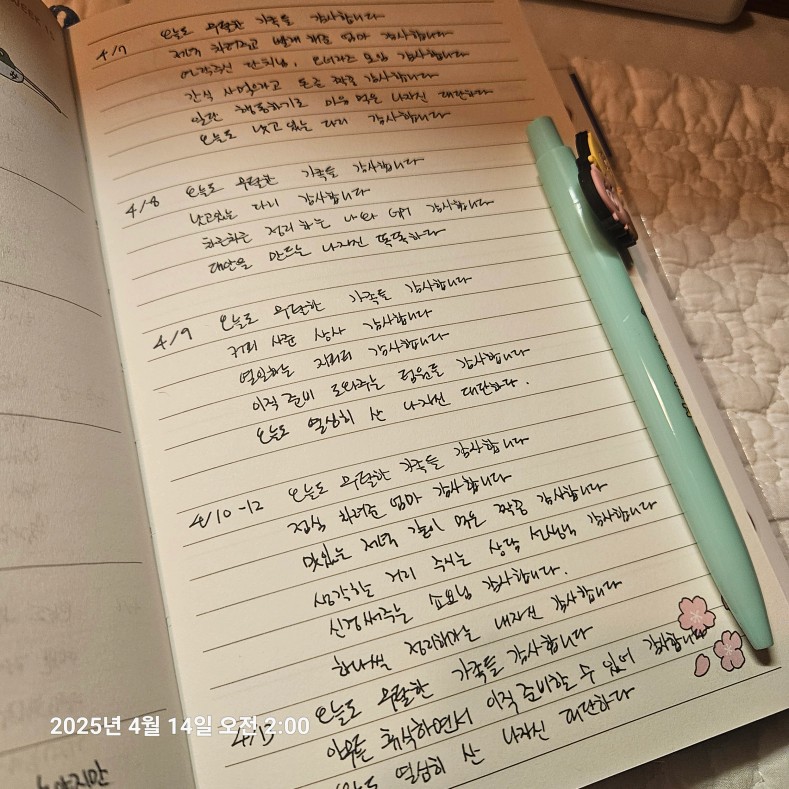 WEEK 15
4/7 오늘도 무탈한 가족들 감사합니다
제육 차려주고 빨래 해준 엄마 감사합니다
연락주신 단치님, 감사합니다
간식 사먹으라고 돈준 짝꿍 감사합니다
일단 행동하기로 마음 먹은 나자신 대단하다
오늘도 낫고있는 다리 감사합니다
4/8 오늘도 무탈한 가족들 감사합니다
낫고있는 다리 감사합니다
차근차근 정리하는 나와 GPT 감사합니다
대안을 만드는 나자신 똑똑하다
4/9 오늘도 무탈한 가족들 감사합니다
커피 사준 상사 감사합니다
열일하는 감사합니다
이직준비 도와주는 텀원들 감사합니다
오늘도 열심히 산 나자신 대단하다.
4/10-12 오늘도 무탈한 가족들 감사합니다
점심 차려준 엄마 감사합니다
맛있는 제육 같이 먹은 짝꿍 감사합니다
생각할 거리 주시는 상담 선생님 감사합니다
신경써주는 쇼요님 감사합니다.
하나씩 정리해가는 내자신 감사합니다
4/13 오늘도 무탈한 가족들 감사합니다
아무튼 휴식하면서 이직 준비할 수 있어 감사합니다
오늘도 열심히 산 나자신 대단하다
2025년 4월 14일 오전 2:00